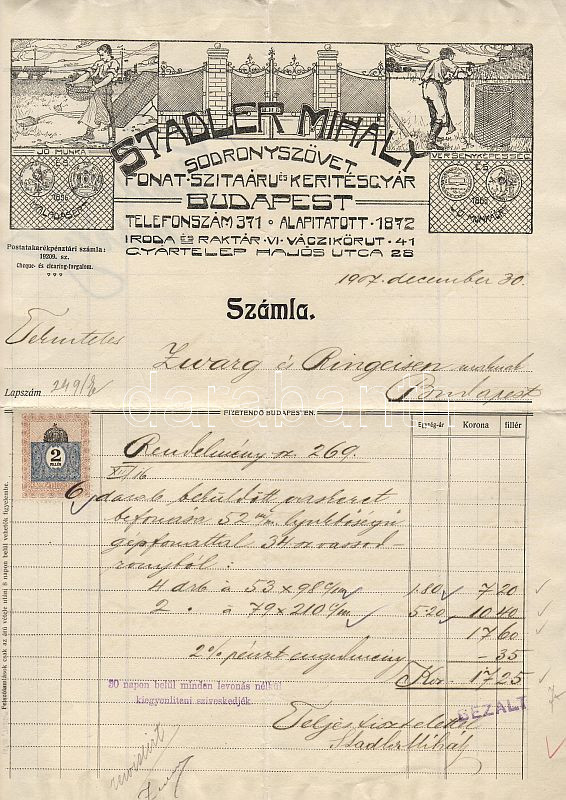 STADLER MIHÁLY
SODRONYSZÖVET
FONAT-SZITAÁRU ÉS KERITÉSGYÁR
BUDAPEST
TELEFONSZÁM 371 • ALAPITATOTT • 1872
IRODA ÉS RAKTÁR • VI • VÁCZIKÖRUT • 41
GYÁRTELEP HAJÓS UTCA 28
JÓ MUNKA
VERSENYKÉPESSÉG
ÉS
1896
Postatakarékpénztári számla:
19209. sz.
Cheque- és clearing-forgalom.
1907. december 30.
Számla.
Tekintetes
Zwarg és Ringeisen uraknak
Budapest
Lapszám 249/II
darabanth
FIZETENDŐ BUDAPESTEN.
Egység-ár Korona fillér
2
FILLÉR
Rendelmény sz 269.
XII/16
6 darab beküldött vaskeret
befonása 52 m/m lyukbőségű
gépfonattal 34 sz vassod-
ronyból:
4 drb à 53 x 98 c/m 1.80 7 20
2 " à 79 x 210 c/m 5.20 10 40
17 60
2% pénzt. engedmény - 35
Kor. 17 25
30 napon belül minden levonás nélkül
kiegyenlíteni sziveskedjék
BEZALT
Teljes tisztelettel
Stadler Mihály
Felszólamlások csak az áru vétele utáni 8 napon belül vehetők figyelembe.